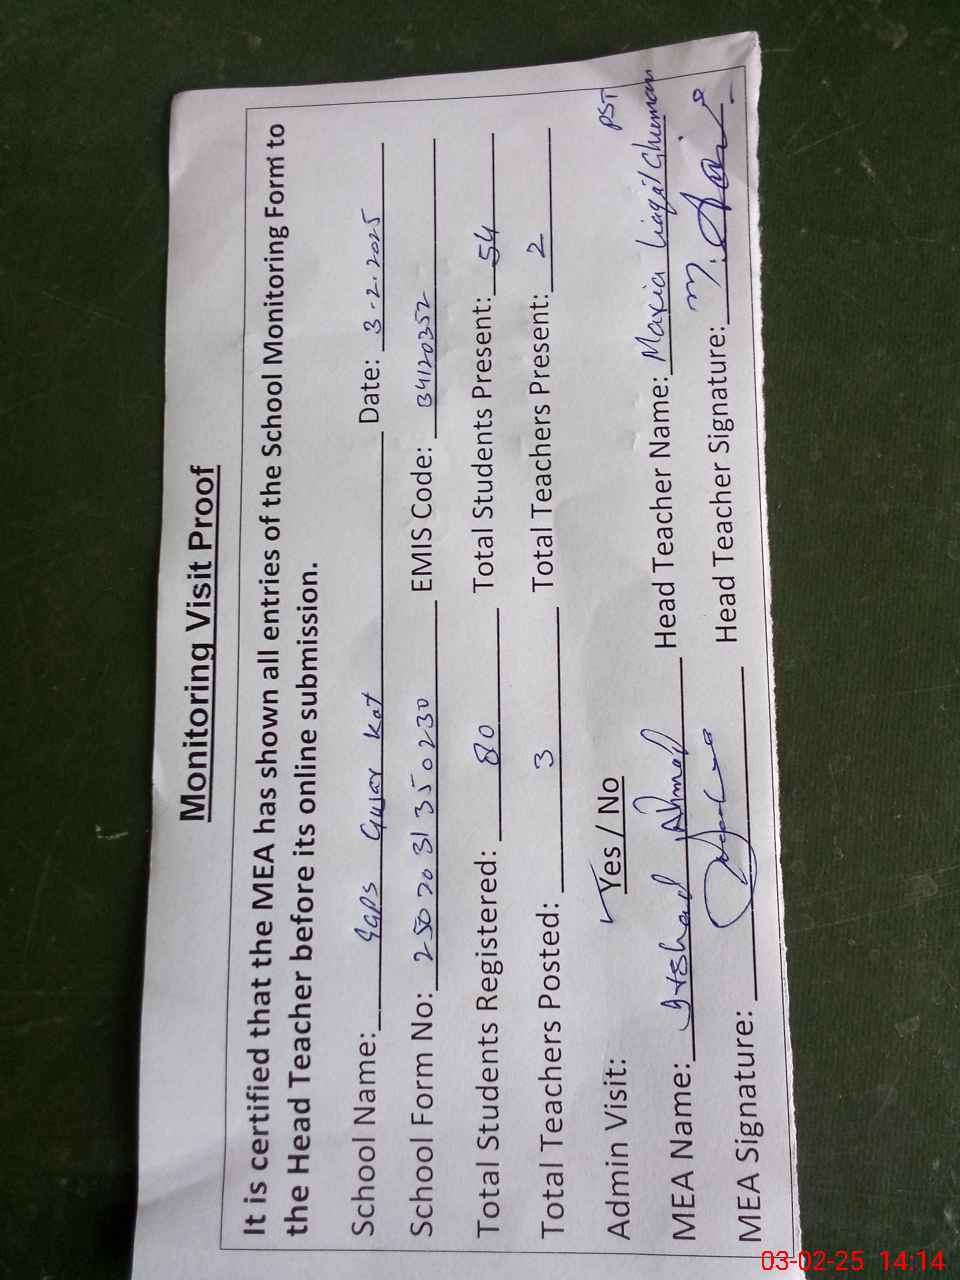 Monitoring Visit Proof
It is certified that the MEA has shown all entries of the School Monitoring Form to
the Head Teacher before its online submission.
School Name: GGPS Gujar Kot Date: 3-2-2025
School Form No: 2502031350230 EMIS Code: 34120352
Total Students Registered: 80 Total Students Present: 54
Total Teachers Posted: 3 Total Teachers Present: 2
Admin Visit: Yes / No PST
MEA Name: Irshad Ahmad Head Teacher Name: Maria Liaqat Ghuman
MEA Signature: Head Teacher Signature:
03-02-25 14:14